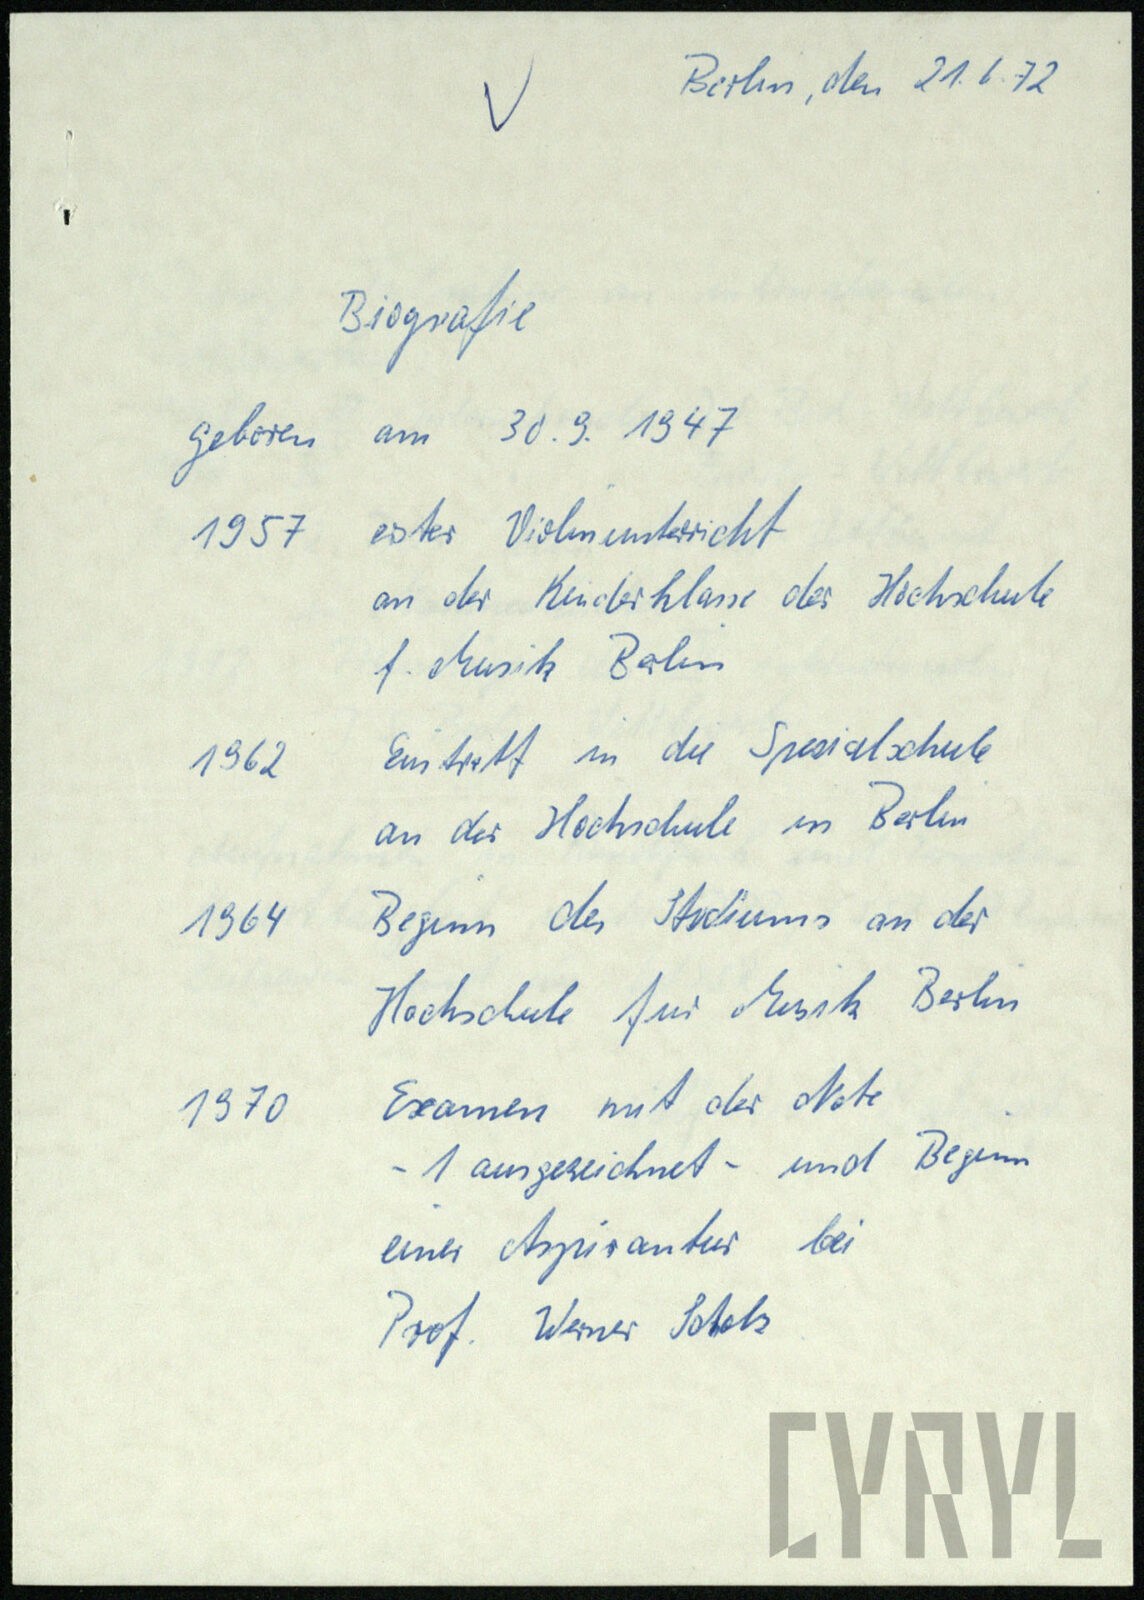 Berlin, den 21.6.72
Biografie
geboren am 30.9.1947
1957 erster Violinunterricht
an der Kinderklasse der Hochschule
f. Musik Berlin
1962 Eintritt in die Spezialschule
an der Hochschule in Berlin
1964 Beginn des Studiums an der
Hochschule für Musik Berlin
1970 Examen mit der Note
- 1 ausgezeichnet - und Beginn
einer Aspirantur bei
Prof. Werner Scholz
CYRYL